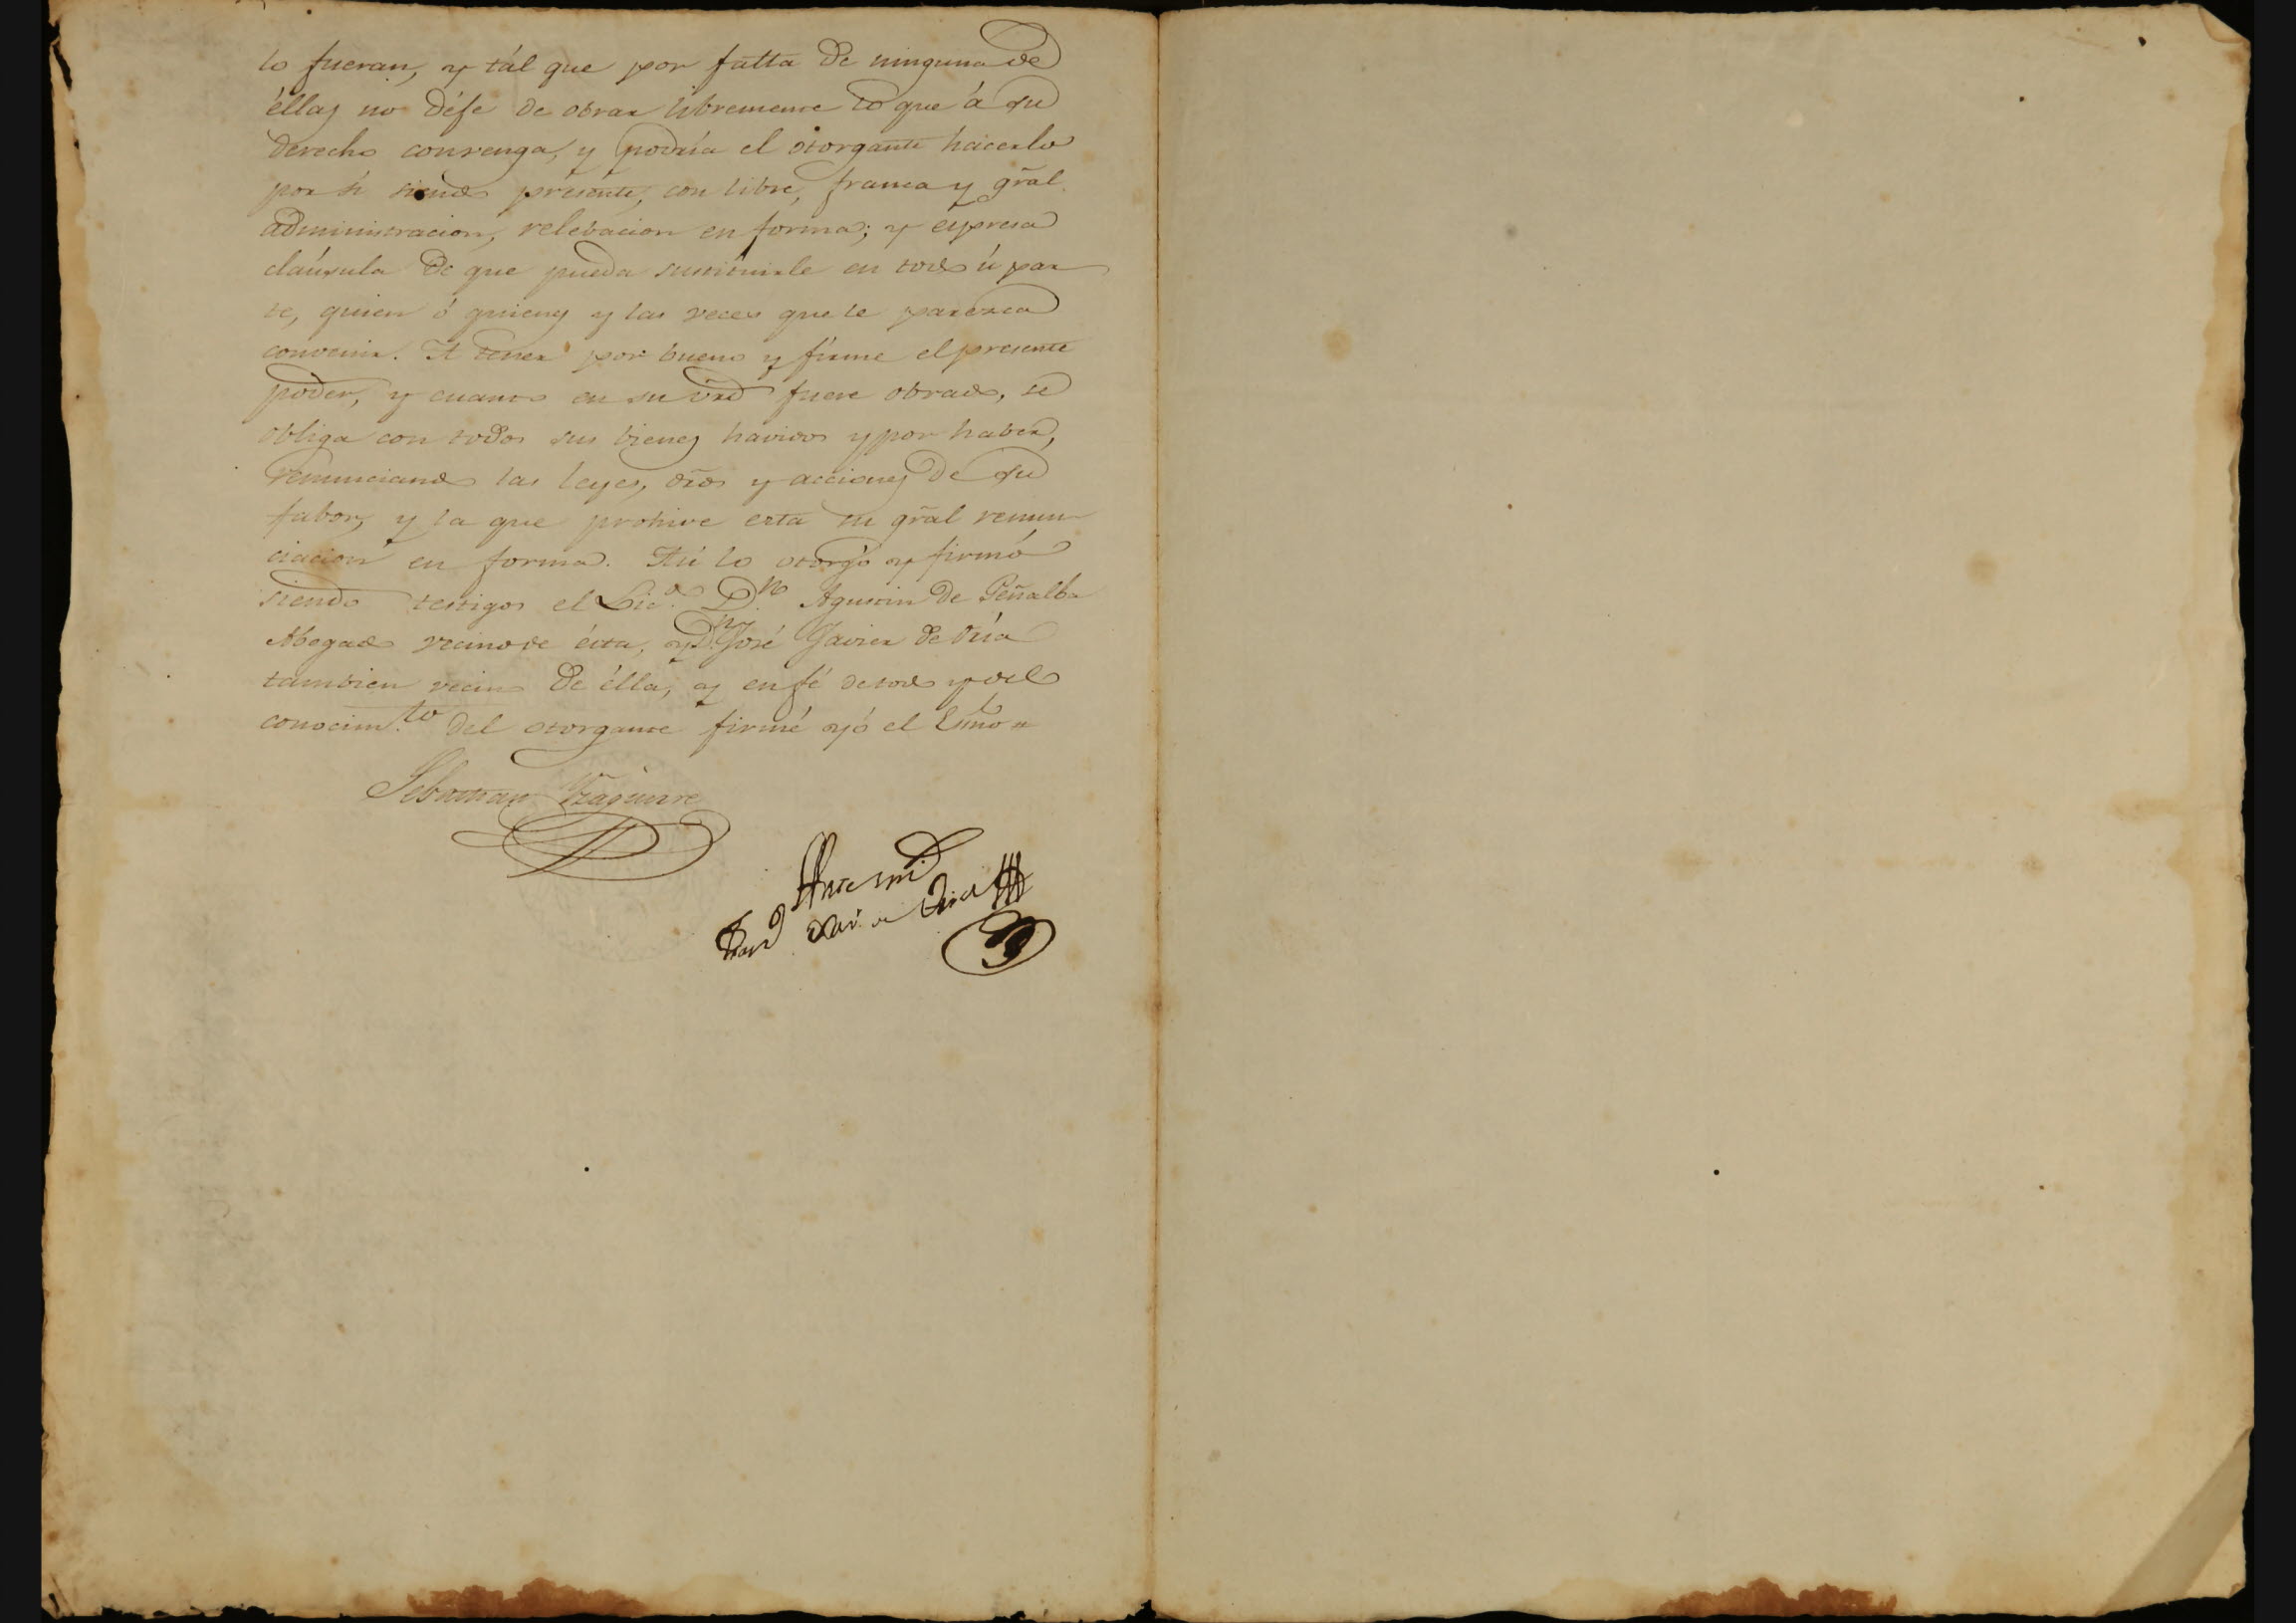 lo fueran, y tál que por falta de ninguna de
éllas no déje de obrar libremente lo que á su
derecho convenga, y podría el otorgante hacerlo
por sí siendo presente, con libre, franca y gr̃al
administracion, relebacion en forma; y expresa
claúsula de que pueda sustituirle en todo ú par
te, quien ó quienes y las veces que le parezca
convenir. A tener por bueno y firme el presente
poder, y cuanto en su vĩrd fuere obrado, se
obliga con todos sus bienes havidos y por haber,
renunciando las leyes, dr̃os y acciones de su
fabor, y la que prohive esta su gr̃al renun
ciacion en forma. Así lo otorgó y firmó
siendo testigos el Lic.º D.n Agustin de Peñalba
Abogado vecino de ésta, y D.n José Javier de Oría
tambien vecino de élla, y en fé de todo y del
conocim.to del otorgante firmé yó el Es̃no=
Sebastian Yzaguirre
Ante mi
Xav.r de Oria